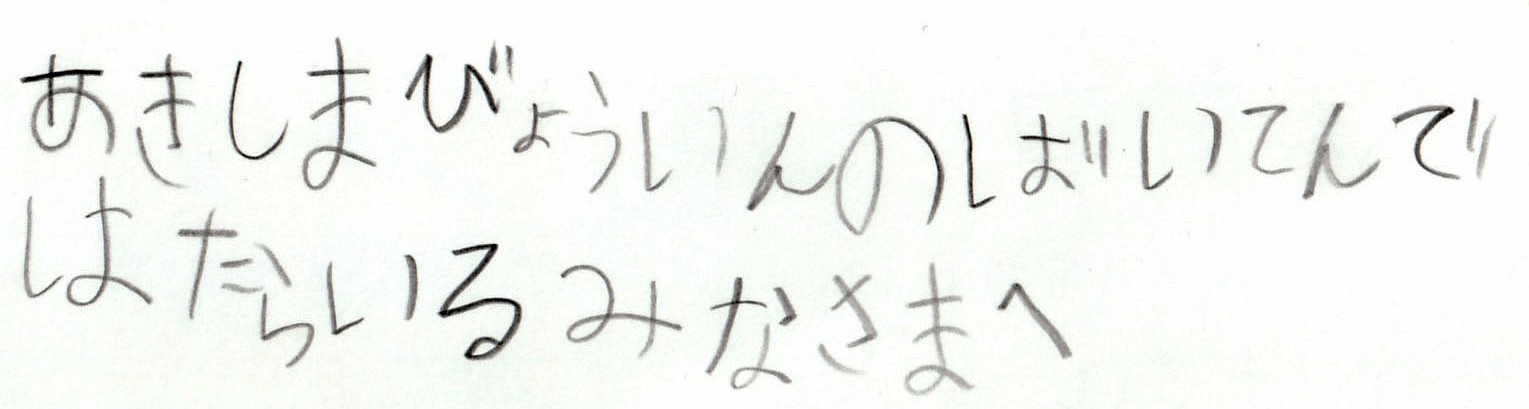 あきしまびょういんのばいてんで
はたらいるみなさまへ